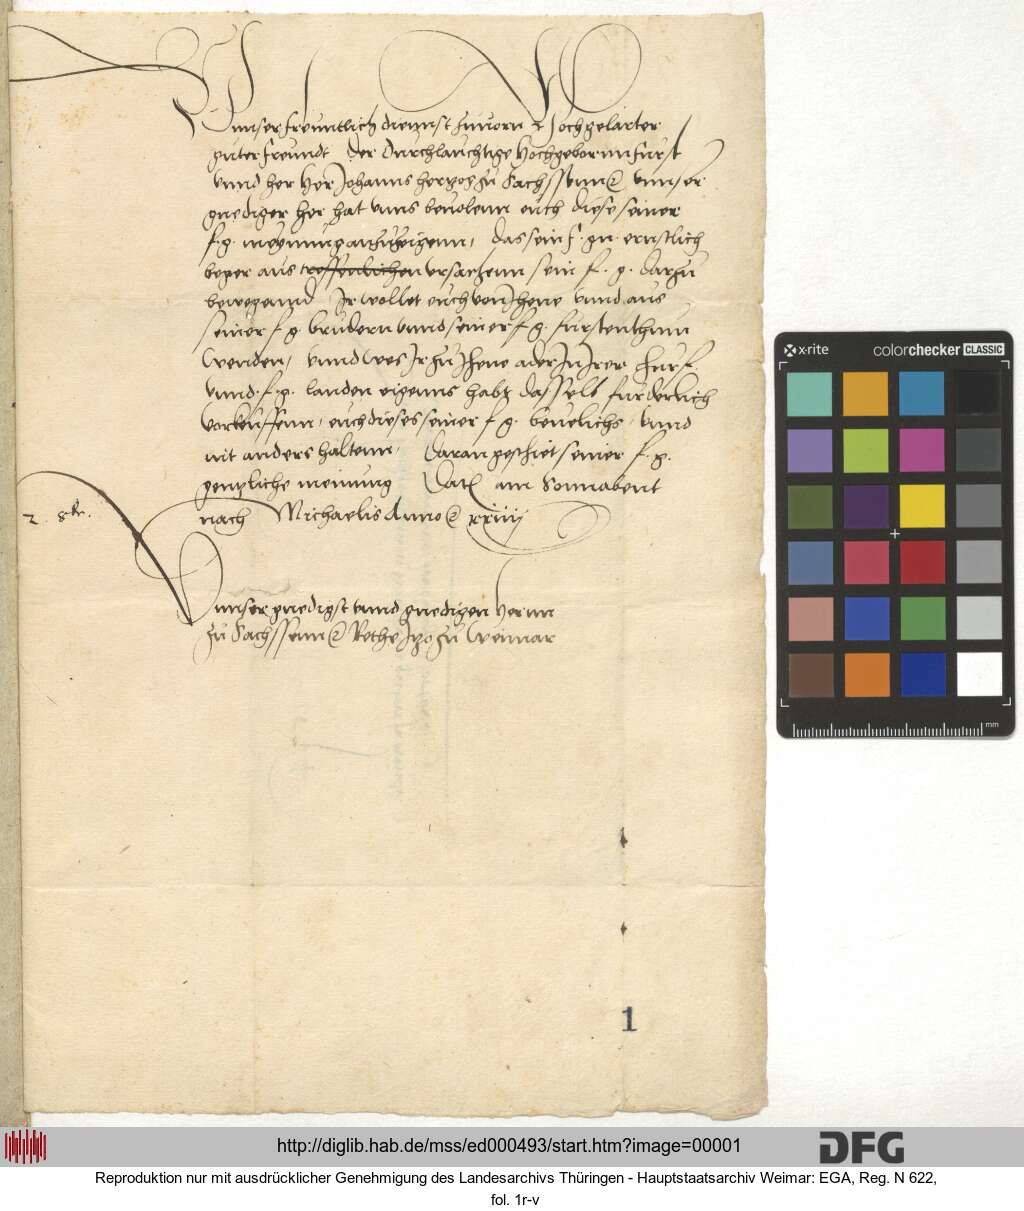 Unser freuntlich diennst zuuorn Hochgelarter
guter freundt Der Durchlauchtige Hochgebornn furst
vnnd her Her Johanns hertzog zu Sachssenn &c vnnser
gnediger her hat vnns beuolenn euch diese seiner
f. g. meynung antzuzeigenn, das sein f. gn. ernstlich
beger aus treffenlichen vrsachenn sein f. g. dartzu
bewegennd Ir wollet euch von Jhene vnnd aus
seiner f g. brudern vnnd seiner f g. furstenthum
wenden, vnnd wes Ir zu Jhene ader In Irer churf.
vnnd f. g. landen eigenns habt dasselb furderlich
vorkeuffenn, euch dieses seiner f g. beuelichs, vnnd
nit anders haltenn, Daran geschiet seiner f. g.
gentzliche meinung Datum am Sonnabent
nach Michaelis Anno &c xxiiij
Vnnser gnedigst vnnd gnedigen Hernn
zu Sachssenn &c Rethe Itzo zu Weimar
1
x-rite colorchecker CLASSIC
mm
http://diglib.hab.de/mss/ed000493/start.htm?image=00001
DFG
Reproduktion nur mit ausdrücklicher Genehmigung des Landesarchivs Thüringen - Hauptstaatsarchiv Weimar: EGA, Reg. N 622,
fol. 1r-v